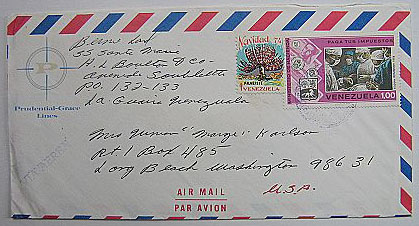 Bern Lad
SS Santa Maria
H. L. Boulton & Co.
Avenida Soublette
P.O. 132-133
La Guaira Venezuela
P
Prudential-Grace
Lines
Navidad 74
VENEZUELA
PAGA TUS IMPUESTOS
VENEZUELA 1,00
Mrs Vernon "Marge" Karlson
Rt. 1 Box 485
Long Beach Washington 98631
U.S.A.
AIR MAIL
PAR AVION